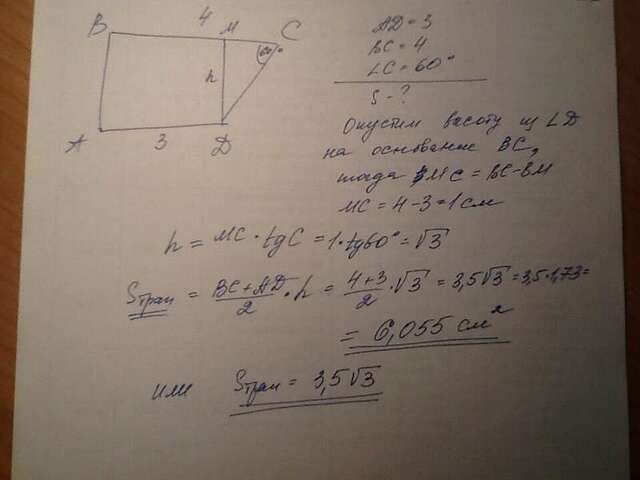 B 4 M C
60°
h
A 3 D
AD = 3
BC = 4
∠C = 60°
S - ?
Опустим высоту из ∠D
на основание BC,
тогда MC = BC - BM
MC = 4 - 3 = 1 см
h = MC · tgC = 1 · tg60° = √3
Sтрап = (BC + AD)/2 · h = (4 + 3)/2 · √3 = 3,5√3 = 3,5·1,73 =
= 6,055 см²
или Sтрап = 3,5√3